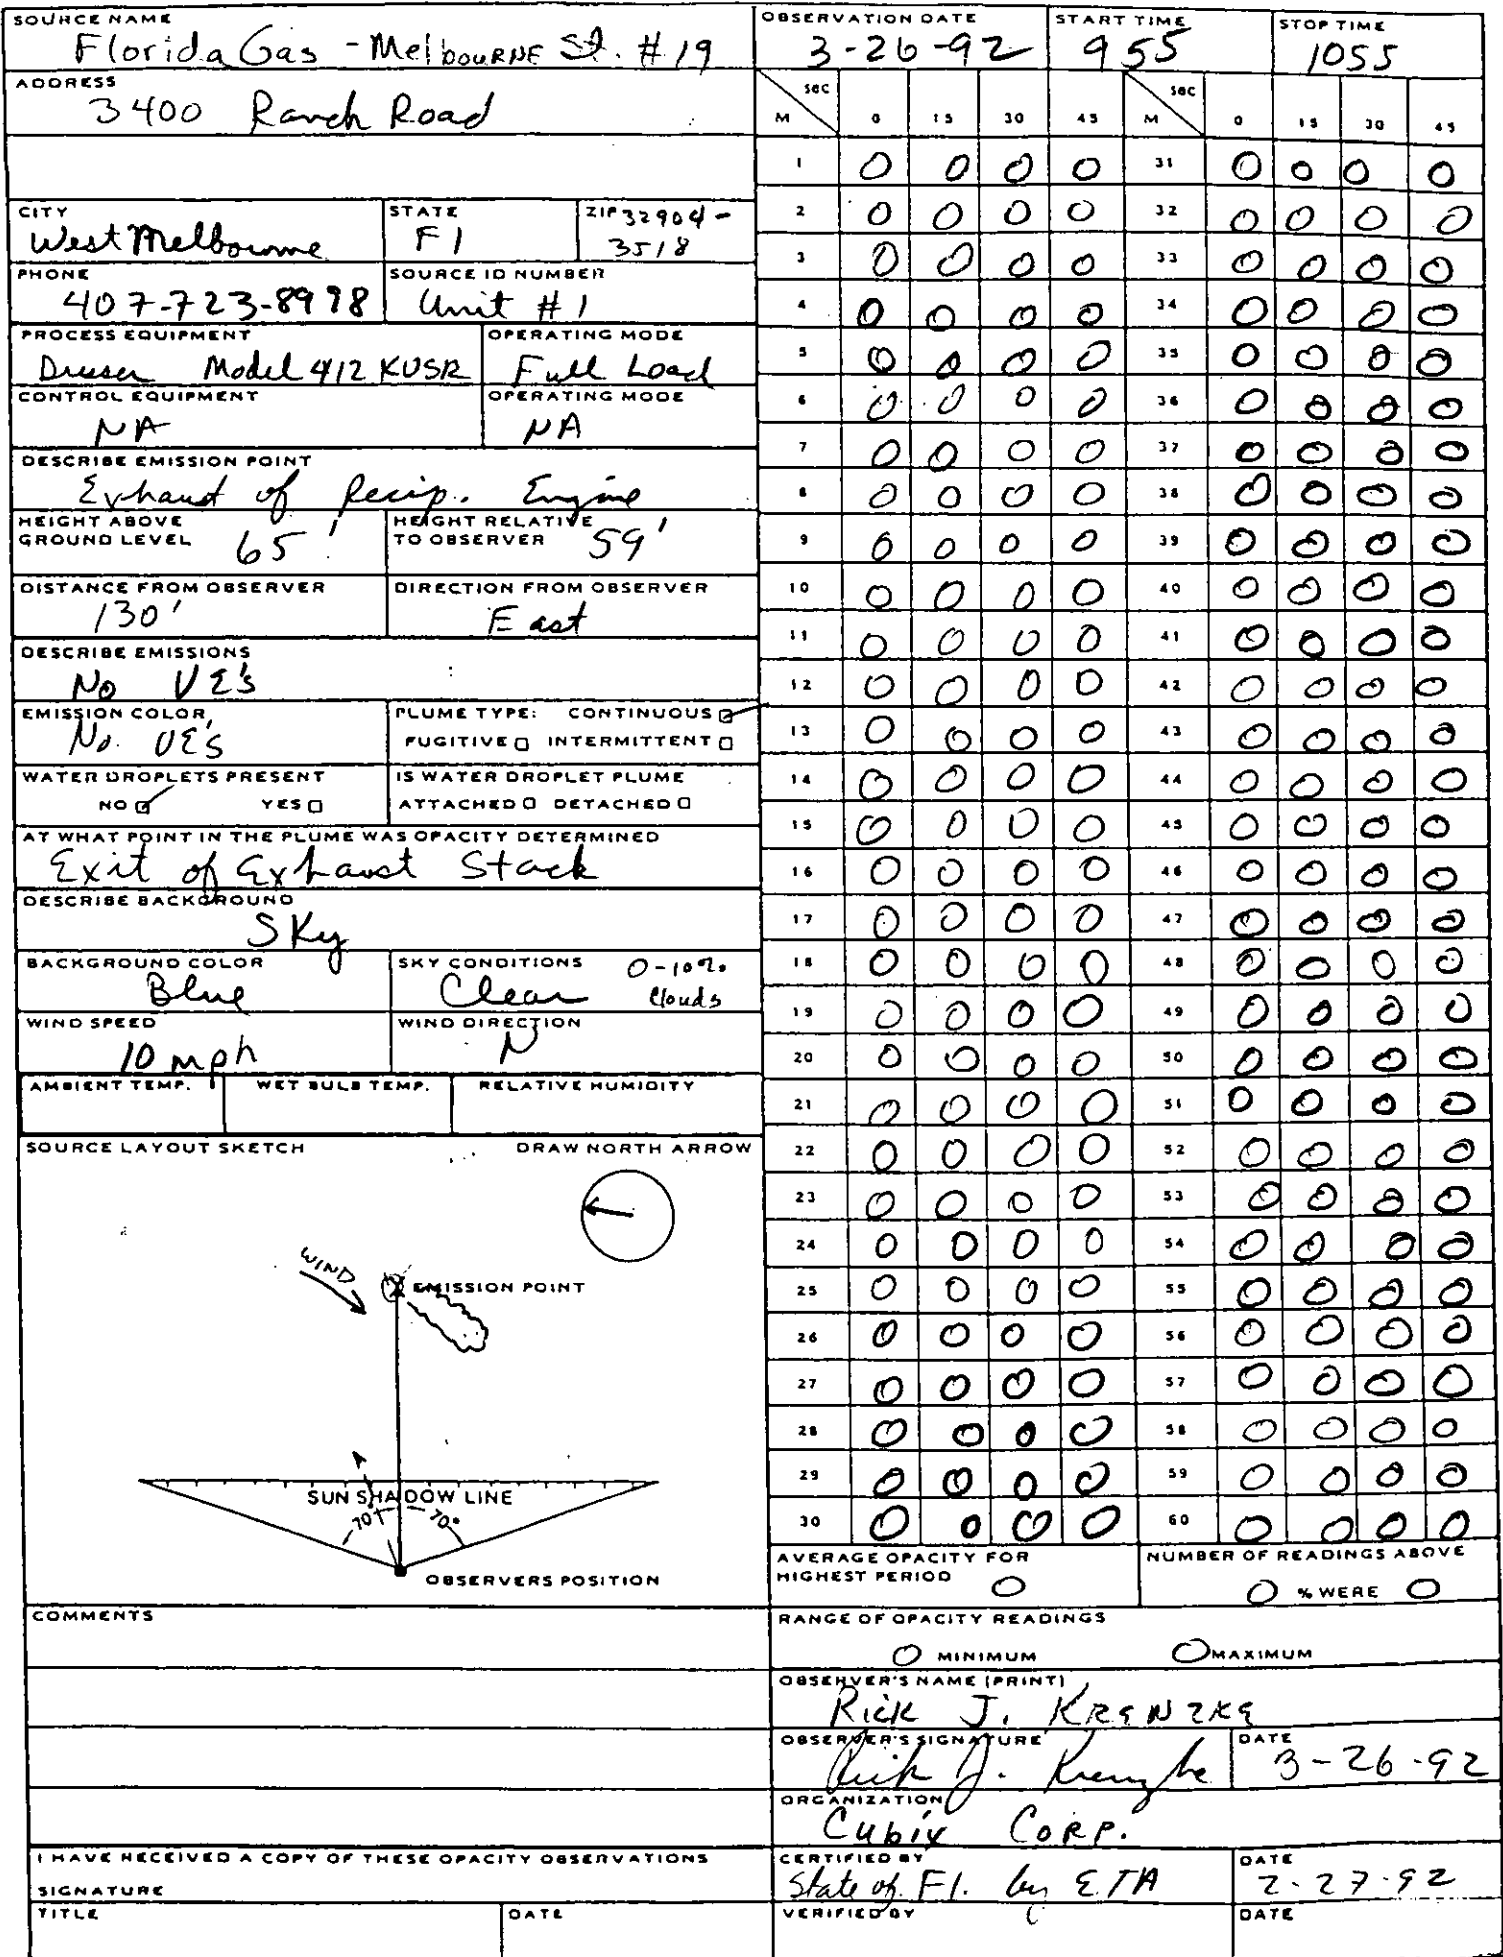 SOURCE NAME
Florida Gas - Melbourne St. #19
OBSERVATION DATE
3-26-92
START TIME
955
STOP TIME
1055
ADDRESS
3400 Ranch Road
CITY
West Melbourne
STATE
Fl
ZIP 32904-
3518
PHONE
407-723-8978
SOURCE ID NUMBER
Unit #1
PROCESS EQUIPMENT
Dresser Model 412 KVSR
OPERATING MODE
Full Load
CONTROL EQUIPMENT
NA
OPERATING MODE
NA
DESCRIBE EMISSION POINT
Exhaust of Recip. Engine
HEIGHT ABOVE
GROUND LEVEL 65'
HEIGHT RELATIVE
TO OBSERVER 59'
DISTANCE FROM OBSERVER
130'
DIRECTION FROM OBSERVER
East
DESCRIBE EMISSIONS
No VE's
EMISSION COLOR
No. VE's
PLUME TYPE: CONTINUOUS
FUGITIVE INTERMITTENT
WATER DROPLETS PRESENT
NO YES
IS WATER DROPLET PLUME
ATTACHED DETACHED
AT WHAT POINT IN THE PLUME WAS OPACITY DETERMINED
Exit of Exhaust Stack
DESCRIBE BACKGROUND
Sky
BACKGROUND COLOR
Blue
SKY CONDITIONS 0-10%
Clear Clouds
WIND SPEED
10 mph
WIND DIRECTION
N
AMBIENT TEMP. WET BULB TEMP. RELATIVE HUMIDITY
SOURCE LAYOUT SKETCH DRAW NORTH ARROW
WIND
EMISSION POINT
SUN SHADOW LINE
70° 70°
OBSERVERS POSITION
COMMENTS
I HAVE RECEIVED A COPY OF THESE OPACITY OBSERVATIONS
SIGNATURE
TITLE DATE
sec sec
M 0 15 30 45 M 0 15 30 45
1 0 0 0 0 31 0 0 0 0
2 0 0 0 0 32 0 0 0 0
3 0 0 0 0 33 0 0 0 0
4 0 0 0 0 34 0 0 0 0
5 0 0 0 0 35 0 0 0 0
6 0 0 0 0 36 0 0 0 0
7 0 0 0 0 37 0 0 0 0
8 0 0 0 0 38 0 0 0 0
9 0 0 0 0 39 0 0 0 0
10 0 0 0 0 40 0 0 0 0
11 0 0 0 0 41 0 0 0 0
12 0 0 0 0 42 0 0 0 0
13 0 0 0 0 43 0 0 0 0
14 0 0 0 0 44 0 0 0 0
15 0 0 0 0 45 0 0 0 0
16 0 0 0 0 46 0 0 0 0
17 0 0 0 0 47 0 0 0 0
18 0 0 0 0 48 0 0 0 0
19 0 0 0 0 49 0 0 0 0
20 0 0 0 0 50 0 0 0 0
21 0 0 0 0 51 0 0 0 0
22 0 0 0 0 52 0 0 0 0
23 0 0 0 0 53 0 0 0 0
24 0 0 0 0 54 0 0 0 0
25 0 0 0 0 55 0 0 0 0
26 0 0 0 0 56 0 0 0 0
27 0 0 0 0 57 0 0 0 0
28 0 0 0 0 58 0 0 0 0
29 0 0 0 0 59 0 0 0 0
30 0 0 0 0 60 0 0 0 0
AVERAGE OPACITY FOR
HIGHEST PERIOD 0
NUMBER OF READINGS ABOVE
0 % WERE 0
RANGE OF OPACITY READINGS
0 MINIMUM 0 MAXIMUM
OBSERVER'S NAME (PRINT)
Rick J. KRENZKE
OBSERVER'S SIGNATURE
Rick J. Krenzke
DATE
3-26-92
ORGANIZATION
Cubix Corp.
CERTIFIED BY
State of Fl. by ETA
DATE
2-27-92
VERIFIED BY
DATE